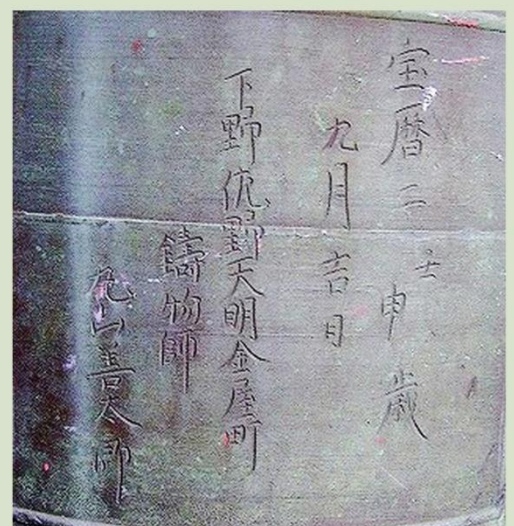 宝暦二壬申歳
九月吉日
下野佐野天明金屋町
鑄物師
丸山善太郎